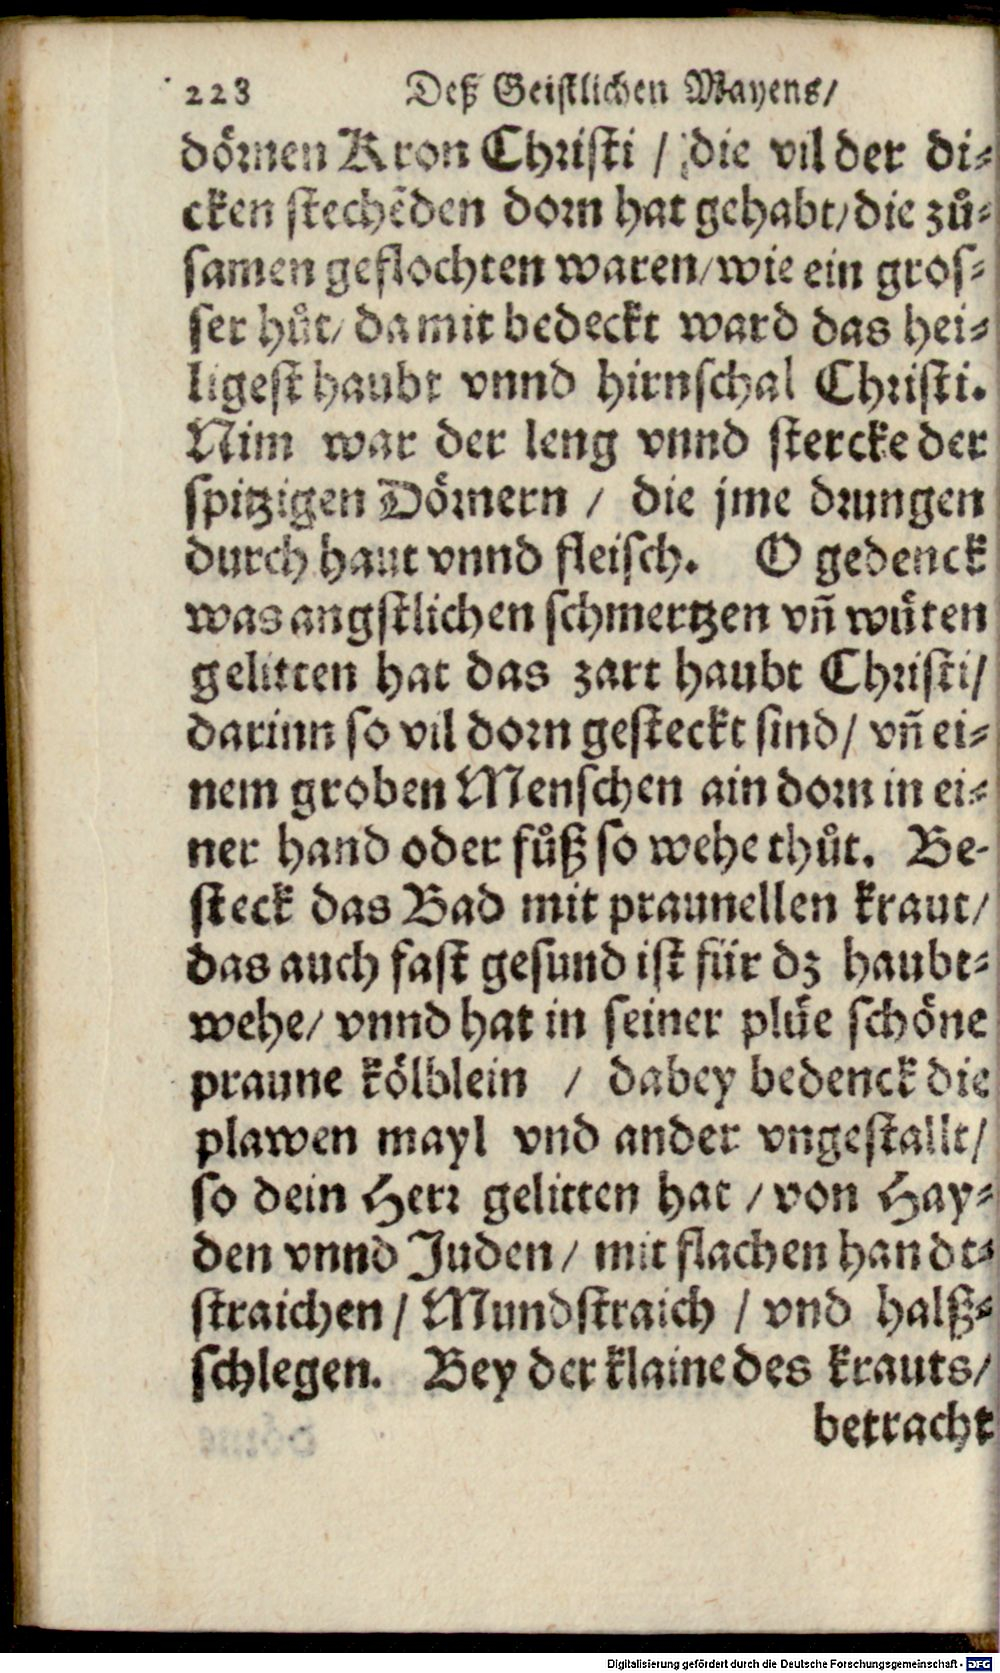 223 Deß Geistlichen Mayens/
dörnen Kron Christi / die vil der di⸗
cken stechẽden dorn hat gehabt/die zů⸗
samen geflochten waren/wie ein gros⸗
ser hůt/ damit bedeckt ward das hei⸗
ligest haubt vnnd hirnschal Christi.
Nim war der leng vnnd stercke der
spitzigen Dörnern / die jme drungen
durch haut vnnd fleisch. O gedenck
was angstlichen schmertzen vñ wüten
gelitten hat das zart haubt Christi/
darinn so vil dorn gesteckt sind/ vñ ei⸗
nem groben Menschen ain dorn in ei⸗
ner hand oder fůß so wehe thůt. Be-
steck das Bad mit praunellen kraut/
das auch fast gesund ist für dz haubt⸗
wehe/ vnnd hat in seiner plüe schöne
praune kölblein / dabey bedenck die
plawen mayl vnd ander vngestallt/
so dein Herr gelitten hat / von Hay⸗
den vnnd Juden/ mit flachen handt⸗
straichen / Mundstraich / vnd halß⸗
schlegen. Bey der klaine des krauts/
betracht
Digitalisierung gefördert durch die Deutsche Forschungsgemeinschaft - DFG